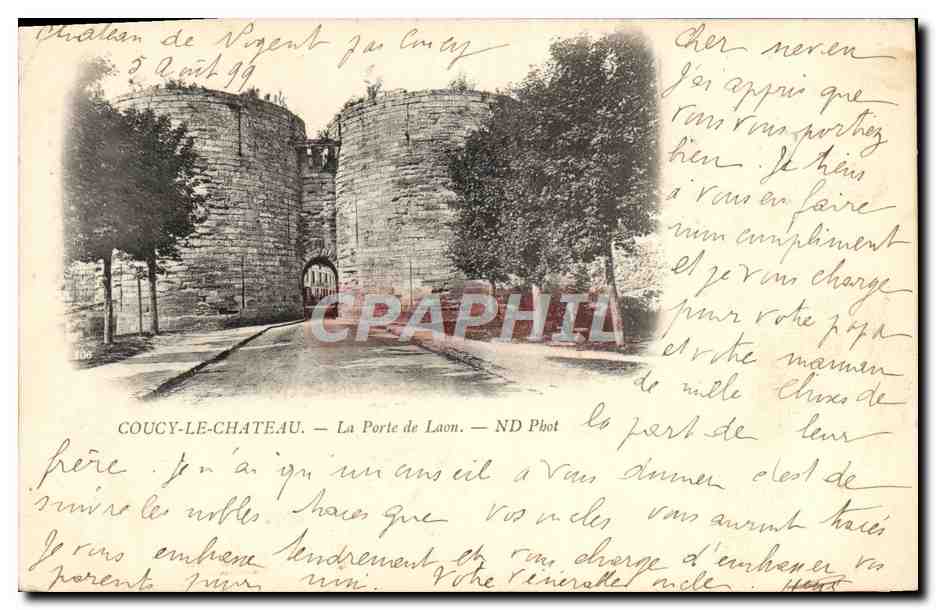 Chateau de Nogent par Coucy
5 Août 99
Cher neveu
J'ai appris que
vous vous portiez
bien. Je tiens
à vous en faire
mon compliment
et je vous charge
pour votre papa
et votre maman
de mille choses de
la part de leur
CPHIL
106
COUCY-LE-CHATEAU. — La Porte de Laon. — ND Phot
frère. Je n'ai qu'un conseil à vous donner c'est de
suivre les nobles traces que vos oncles vous auront tracés
Je vous embrasse tendrement et vous charge d'embrasser vos
parents pour moi. Votre vénérable oncle.